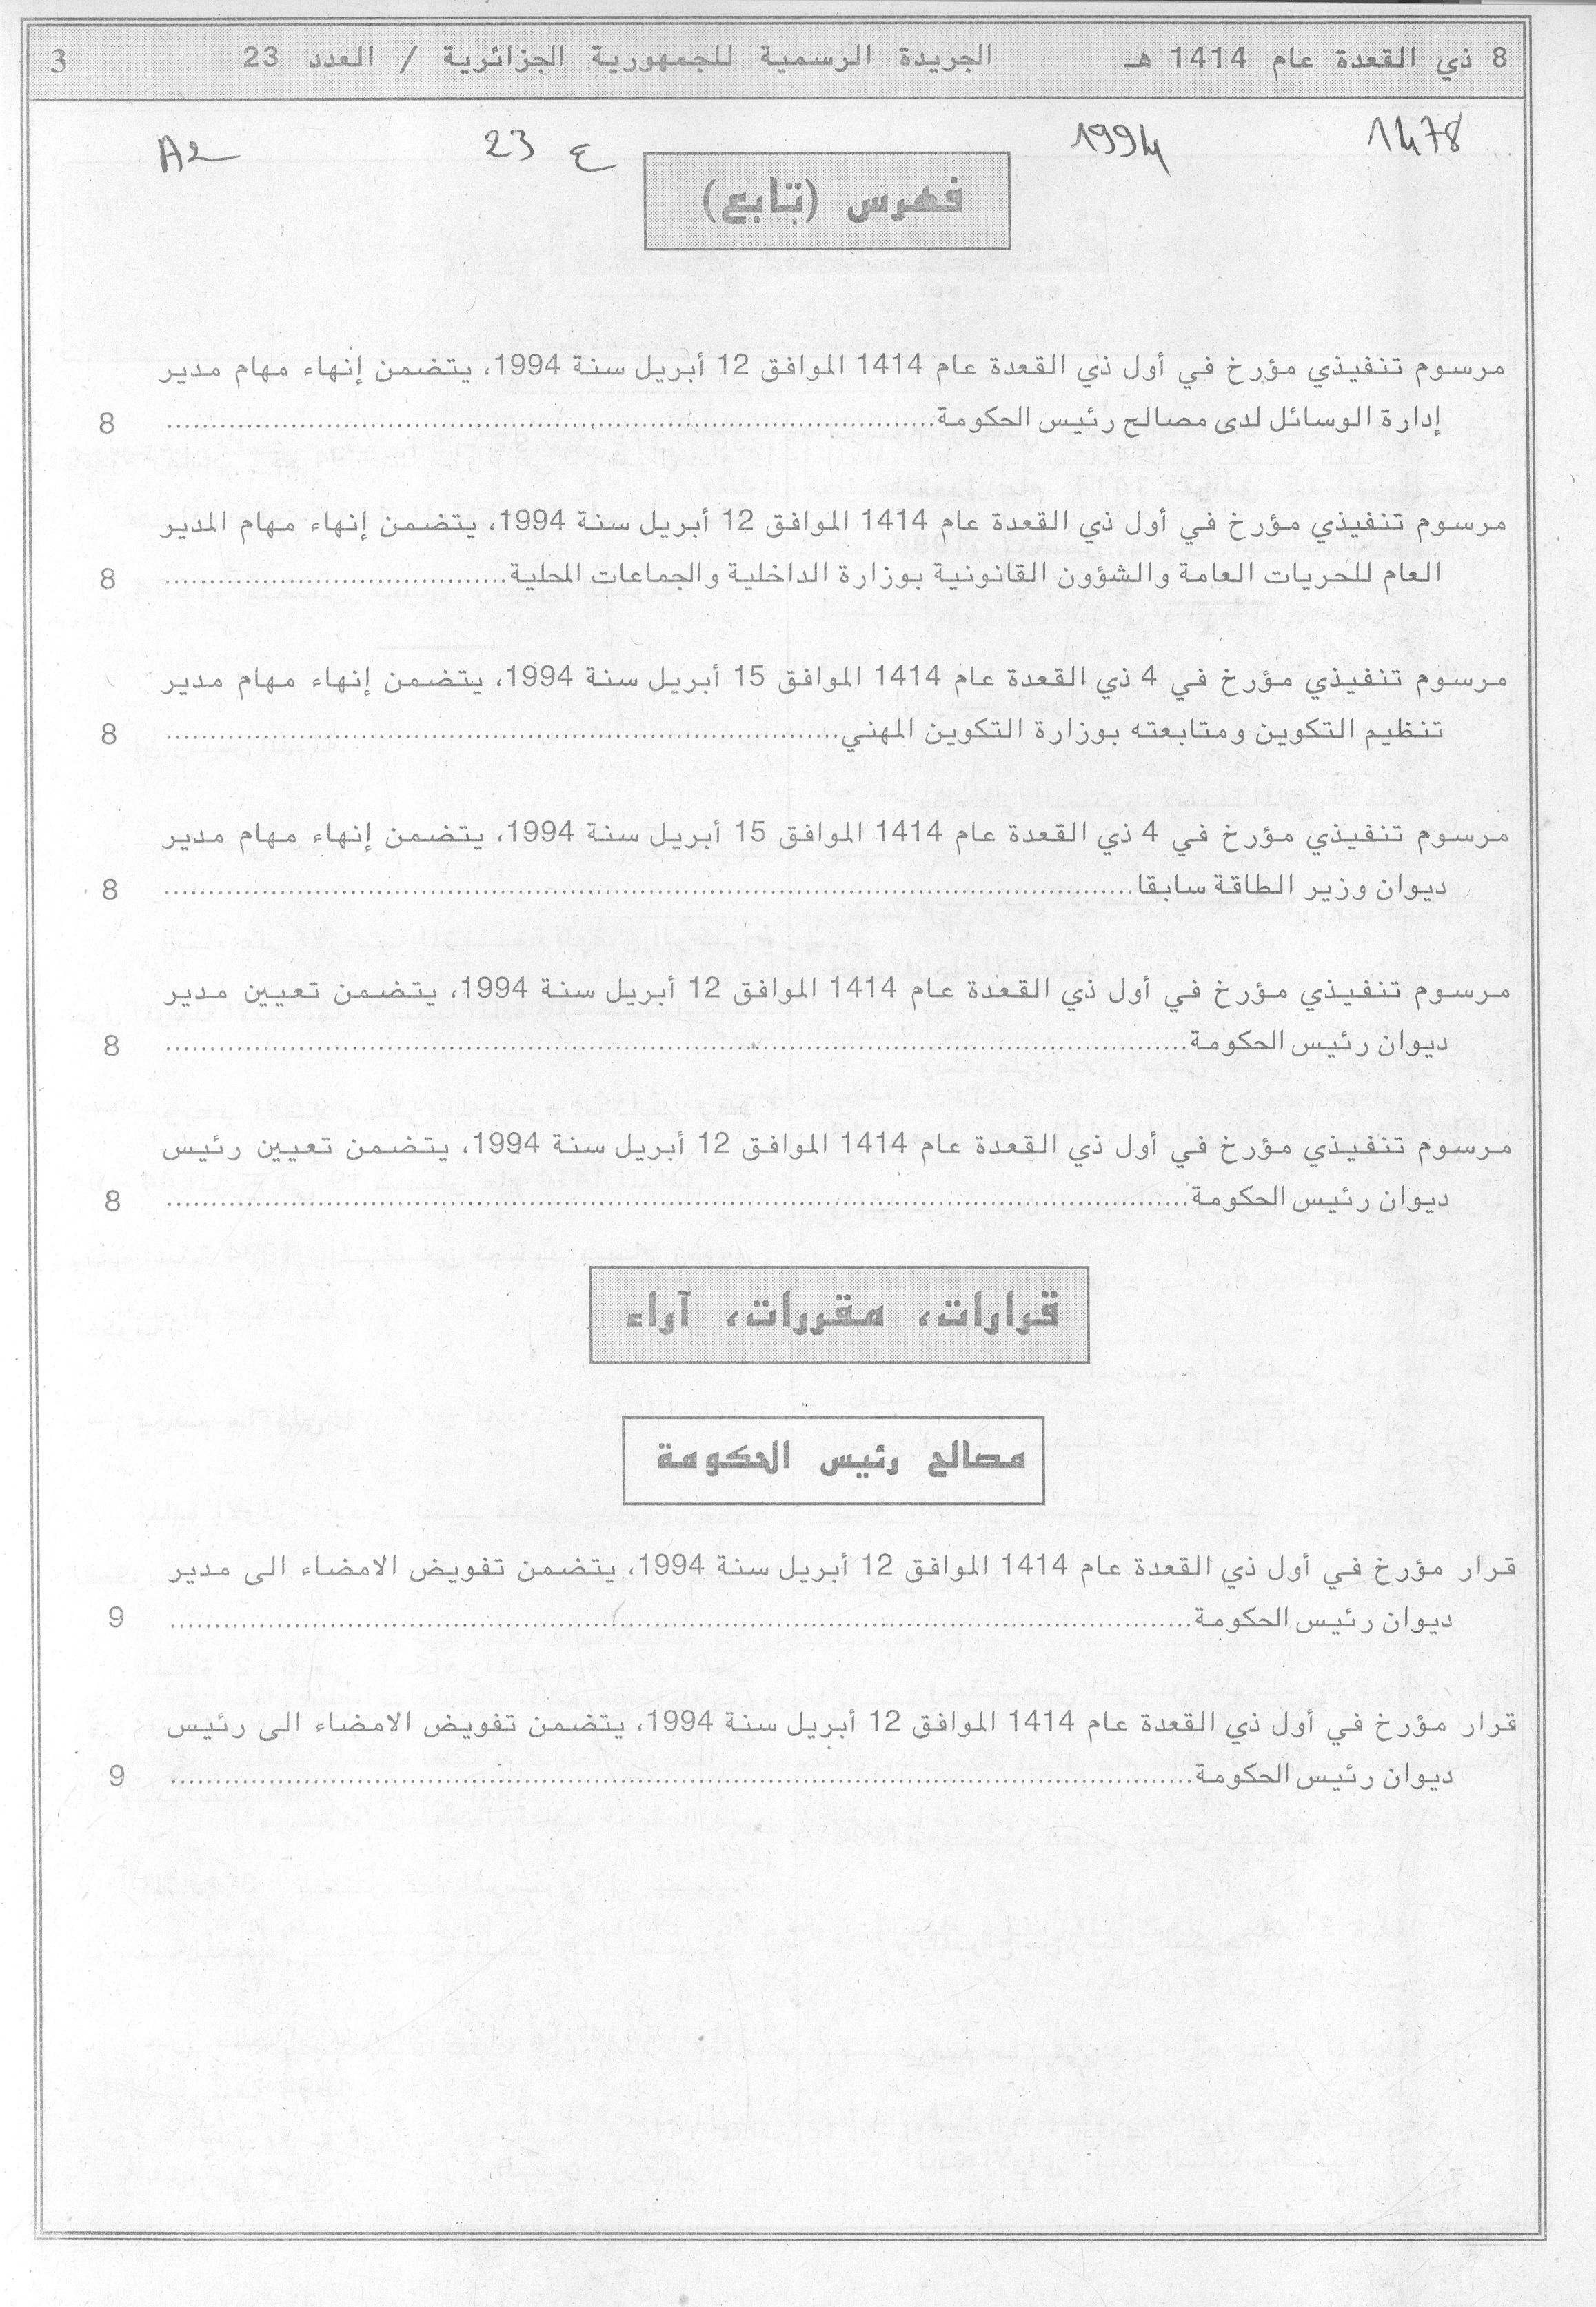 8 ذي القعدة عام 1414 هـ الجريدة الرسمية للجمهورية الجزائرية / العدد 23 3
1478 1994 ع 23 A2
فهرس (تابع)
مرسوم تنفيذي مؤرخ في أول ذي القعدة عام 1414 الموافق 12 أبريل سنة 1994، يتضمن إنهاء مهام مدير
إدارة الوسائل لدى مصالح رئيس الحكومة.................... 8
مرسوم تنفيذي مؤرخ في أول ذي القعدة عام 1414 الموافق 12 أبريل سنة 1994، يتضمن إنهاء مهام المدير
العام للحريات العامة والشؤون القانونية بوزارة الداخلية والجماعات المحلية.................... 8
مرسوم تنفيذي مؤرخ في 4 ذي القعدة عام 1414 الموافق 15 أبريل سنة 1994، يتضمن إنهاء مهام مدير
تنظيم التكوين ومتابعته بوزارة التكوين المهني.................... 8
مرسوم تنفيذي مؤرخ في 4 ذي القعدة عام 1414 الموافق 15 أبريل سنة 1994، يتضمن إنهاء مهام مدير
ديوان وزير الطاقة سابقا.................... 8
مرسوم تنفيذي مؤرخ في أول ذي القعدة عام 1414 الموافق 12 أبريل سنة 1994، يتضمن تعيين مدير
ديوان رئيس الحكومة.................... 8
مرسوم تنفيذي مؤرخ في أول ذي القعدة عام 1414 الموافق 12 أبريل سنة 1994، يتضمن تعيين رئيس
ديوان رئيس الحكومة.................... 8
قرارات، مقررات، آراء
مصالح رئيس الحكومة
قرار مؤرخ في أول ذي القعدة عام 1414 الموافق 12 أبريل سنة 1994، يتضمن تفويض الامضاء الى مدير
ديوان رئيس الحكومة.................... 9
قرار مؤرخ في أول ذي القعدة عام 1414 الموافق 12 أبريل سنة 1994، يتضمن تفويض الامضاء الى رئيس
ديوان رئيس الحكومة.................... 9